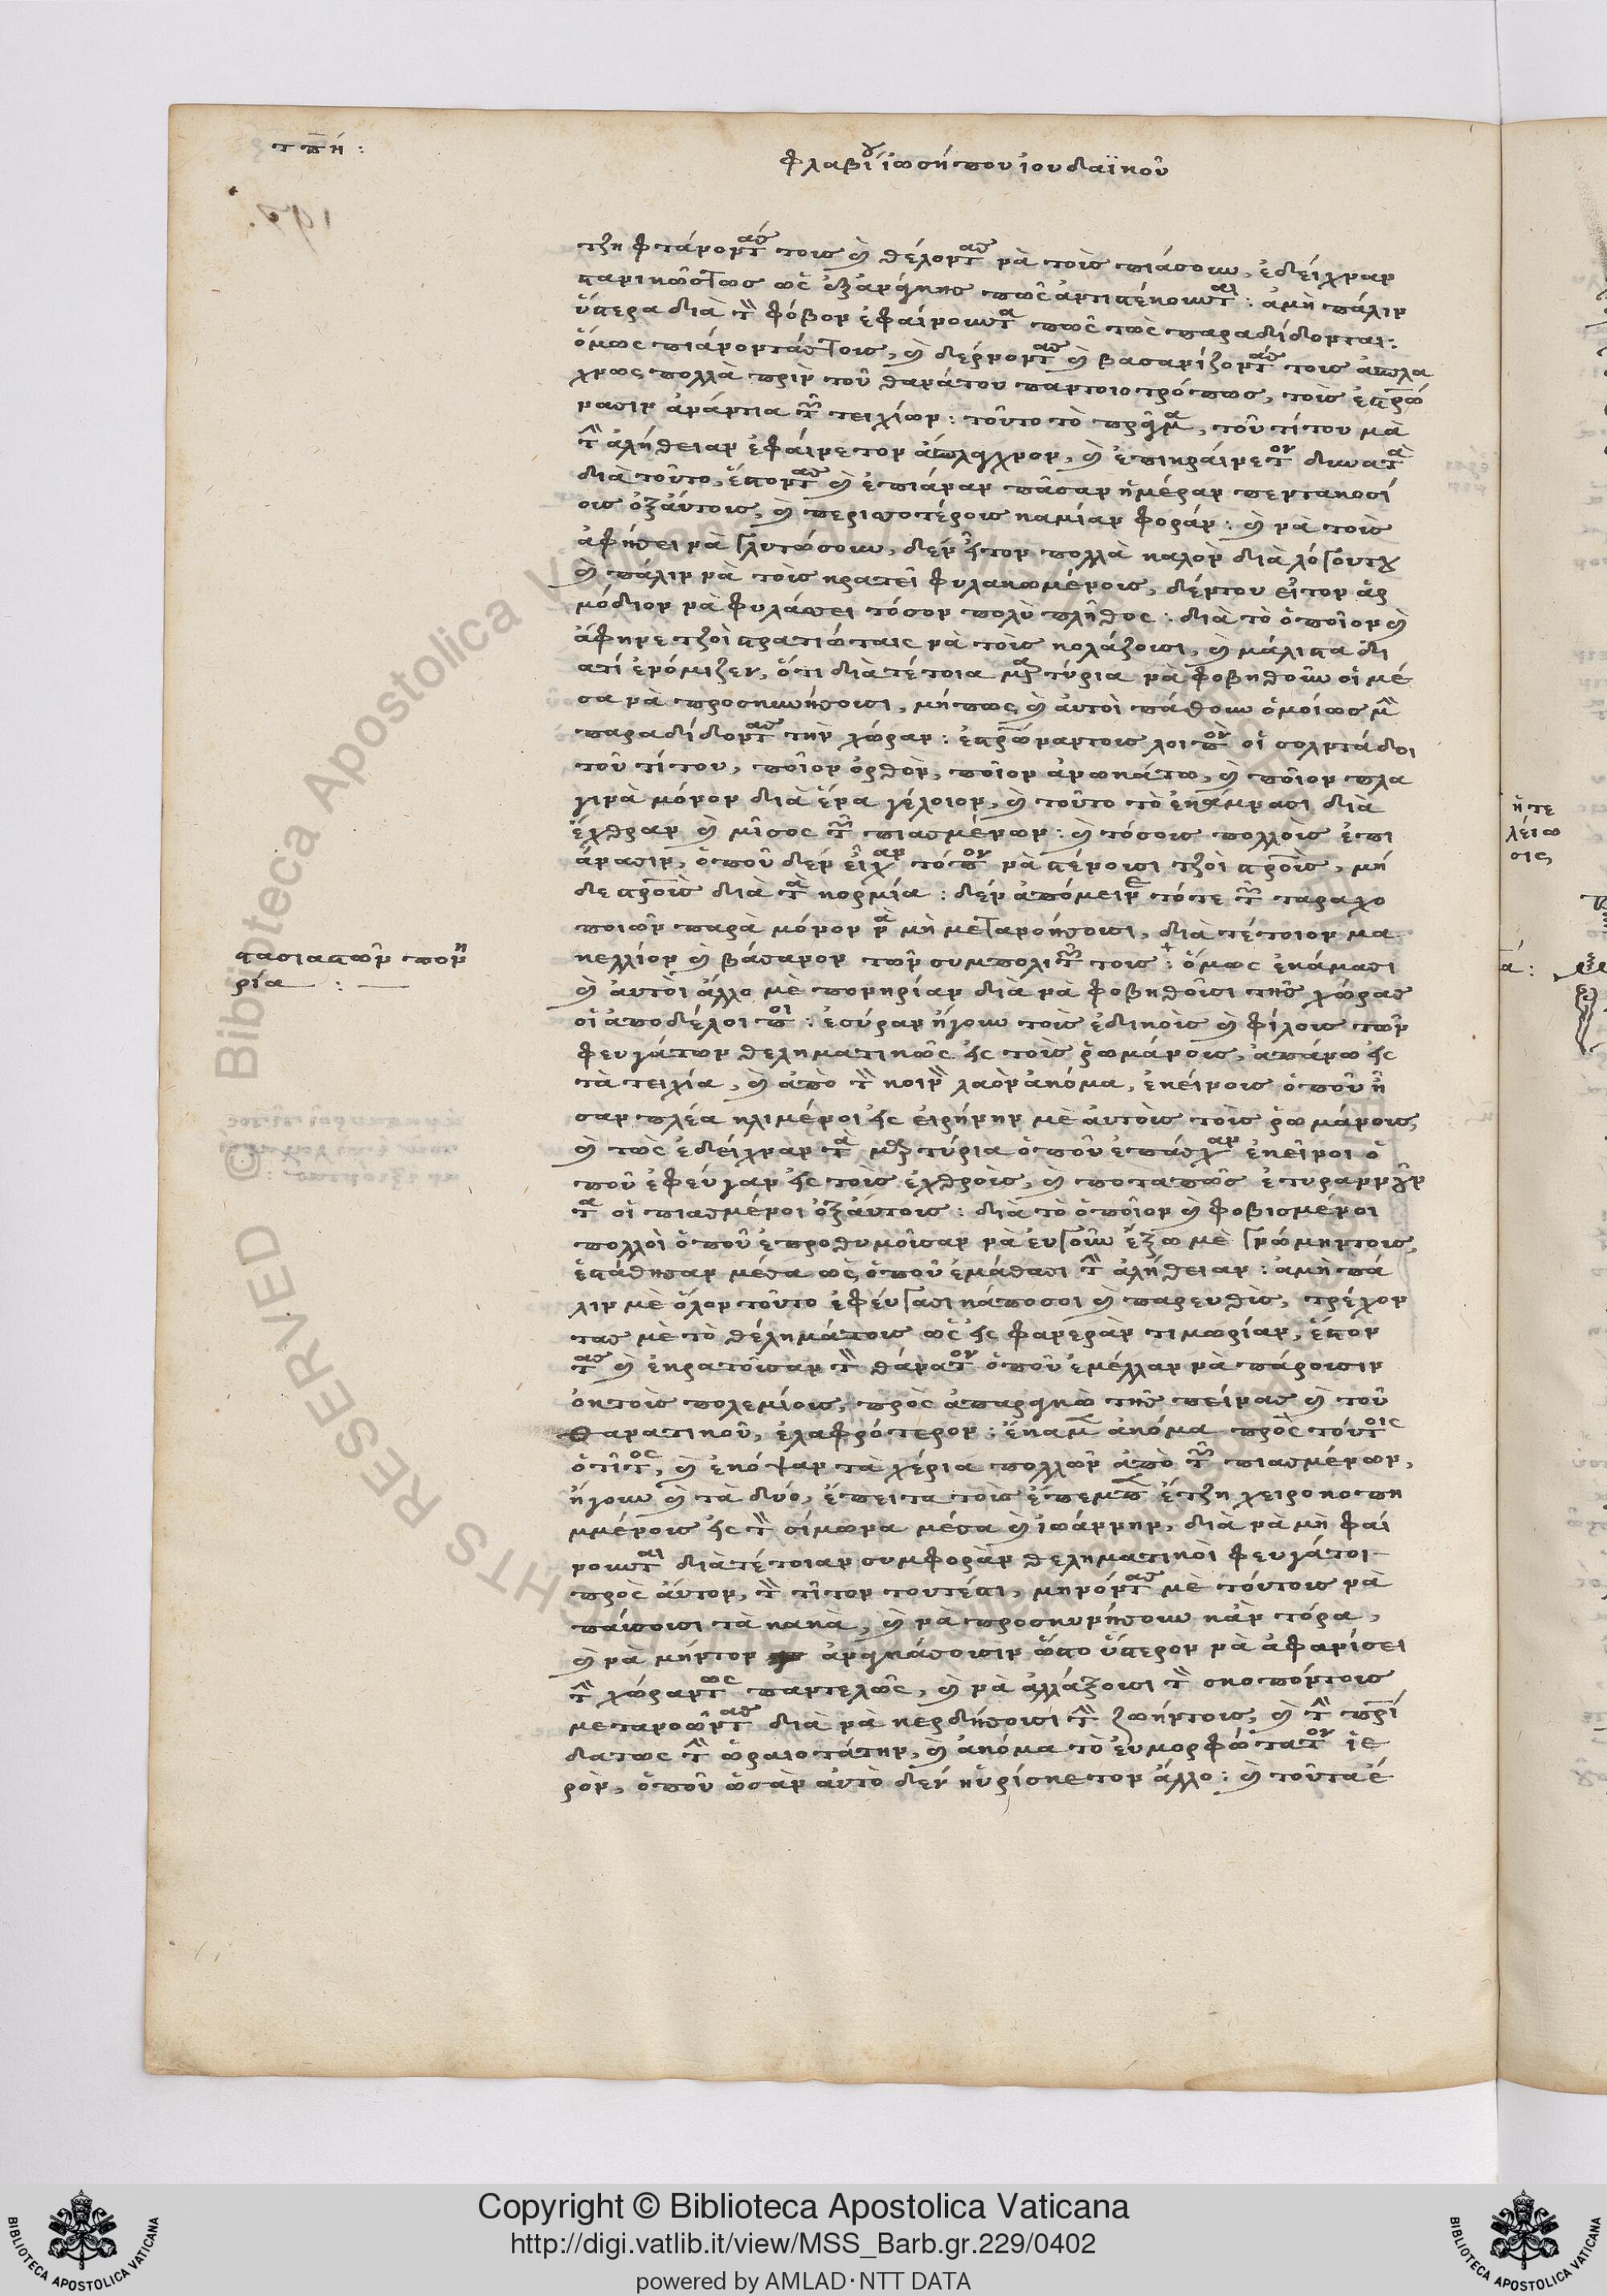 τπή:
φλαβίου ἰωσήπου ἰουδαϊκοῦ
τζη φτάνοντάς τοις καὶ θέλοντας νὰ τοὶς πιάσουν, ἐδείχναν
στανικῶς τως ὡς ἐξανάγκης πῶς ἀντιστέκουνται: ἀμὴ πάλιν
ὕστερα διὰ τὸν φόβον ἐφαίνουντα πῶς τῶς παραδίδονται:
ὅμως πιάνοντάς τοις, καὶ δέρνοντας καὶ βασανίζοντάς τοις
πολλὰ πρὶν τοῦ θανάτου παντοιοτρόπως, τοὶς ἐσταρώ
νασιν ἀνάντια τῶν τειχίων: τοῦτο τὸ πρᾶγμα, τοῦ τίτου μὰ
τὴν ἀλήθειαν ἐφαίνετον καὶ ἐπικραίνετον δυνατὰ
διὰ τοῦτο, ἔστοντας καὶ ἐπιάναν πᾶσαν ἡμέραν πεντακοσί
οις ὀξαύτοις, καὶ περισσοτέροις καμίαν φοράν: καὶ νὰ τοὶς
ἀφήσει νὰ γλυτώσουν, δὲν ἦτον πολλὰ καλὸν διὰ λόγουτου
καὶ πάλιν νὰ τοὶς κρατεῖ φυλακωμένοις, δέντου εἶτον ἁρ
μόδιον νὰ φυλάσσει τόσον πολὺ πλῆθος: διὰ τὸ ὁποῖον καὶ
ἄφηνε τζοὶ στρατιώταις νὰ τοὶς κολάζουσι, καὶ μάλιστα δι
ατί ἐνόμιζεν, ὅτι διὰ τέτοια μαρτύρια νὰ φοβηθοῦν οἱ μέ
σα νὰ προσκυνήσουσι, μήπως καὶ αὐτοὶ πάθουν ὁμοίως μὴ
παραδίδοντας τὴν χώραν: ἐσταρώναντοις λοιπὸν οἱ σολντάδοι
τοῦ τίτου, ποῖον ὀρθὸν, ποῖον ἀνωκάτω, καὶ ποῖον πλα
γινὰ μόνον διὰ ἕνα γέλοιον, καὶ τοῦτο τὸ ἐκάμνασι διὰ
ἔχθραν καὶ μῖσος τῶν πιασμένων: καὶ τόσοις πολλοὶς ἐπι
άνασιν, ὁποῦ δὲν εἶχαν τόπον νὰ στένουσι τζοὶ σταροὶς, μή
δε σταροὶς διὰ τὰ κορμία: δὲν ἀπόμεινε τότε τῶν ταραχο
ποιῶν παρὰ μόνον νὰ μὴ μετανοήσουσι, διὰ τέτοιον μα
κελλίον καὶ βάσανον τῶν συμπολιτῶν τοις: ὅμως ἐκάμασι
στασιαστῶν πονη
ρία : —
καὶ ἀυτοὶ ἄλλο μὲ πονηρίαν διὰ νὰ φοβηθοῦσι τῆς χώρας
οἱ ἀποδέλοιποι: ἐσύραν ἤγουν τοὶς ἐδικοὶς καὶ φίλοις τῶν
φευγάτων θεληματικῶς εἰς τοὶς ῥωμάνοις, ἀπάνω εἰς
τὰ τειχία, καὶ ἀπὸ τὸν κοινὸν λαὸν ἀκόμα, ἐκείνοις ὁποῦ ἦ
σαν πλέα κλιμένοι εἰς εἰρήνην μὲ ἀυτοὶς τοὶς ῥωμάνοις,
καὶ τῶς ἐδείχναν τὰ μαρτύρια ὁποῦ ἐπάσχαν ἐκεῖνοι ὁ
ποῦ ἐφεύγαν εἰς τοὶς ἐχθροὶς, καὶ ποταπῶς ἐτυραννοῦν
τα οἱ πιασμένοι ὀξαύτοις: διὰ τὸ ὁποῖον καὶ φοβισμένοι
πολλοὶ ὁποῦ ἐπροθυμοῦσαν νὰ ἐυγοῦν ἔξω μὲ γνώμηντοις,
ἐστάθησαν μέσα ὡς ὁποῦ ἐμάθασι τὴν ἀλήθειαν: ἀμὴ πά
λιν μὲ ὅλον τοῦτο ἐφεύγασι κάποσοι καὶ παρευθὶς, τρέχον
τας μὲ τὸ θέλημάτοις ὡς εἰς φανερὰν τιμωρίαν, ἔστον
τας καὶ ἐκρατοῦσαν τὸν θάνατον ὁποῦ ἐμέλλαν νὰ πάρουσιν
ὀκτοὶς πολεμίοις, πρὸς ἀπαρηκὼ τῆς πείνας καὶ τοῦ
θανατικοῦ, ἐλαφρότερον: ἔκαμε ἀκόμα πρὸς τούτοις
ὁ τίτος, καὶ ἐκόψαν τὰ χέρια πολλῶν ἀπὸ τῶν πιασμένων,
ἤγουν καὶ τὰ δύο, ἔπειτα τοὶς ἔπεμπε ἔτζη χειροκοπη
μμένοις εἰς τὸν σίμωνα μέσα καὶ ἰωάννην, διὰ νὰ μὴ φαί
νουνται διὰ τέτοιαν συμφορὰν θεληματικοὶ φευγάτοι
πρὸς ἀυτον, τὸν τίτον τουτέστι, μηνόντας μὲ τούτοις νὰ
παύσουσι τὰ κακὰ, καὶ νὰ προσκυνήσουν κἂν τόρα,
καὶ νὰ μήντον ἀναγκάσουσιν ὥστο ὕστερον νὰ ἀφανίσει
τὴν χώραντως παντελῶς, καὶ νὰ ἀλλάξουσι τὸν σκοπόντοις
μετανοῶντας διὰ νὰ κερδήσουσι τὴν ζωήντοις, καὶ τὴν πατρί
δατως τὴν ὡραιοτάτην, καὶ ἀκόμα τὸ ἐυμορφώτατον ἱε
ρὸν, ὁποῦ ὡσὰν ἀυτὸ δὲν ηὑρίσκετον ἄλλο: καὶ τοῦτα ἐ
ἡ τε
λείω
σις
Copyright © Biblioteca Apostolica Vaticana
http://digi.vatlib.it/view/MSS_Barb.gr.229/0402
powered by AMLAD·NTT DATA
BIBLIOTECA APOSTOLICA VATICANA
BIBLIOTECA APOSTOLICA VATICANA